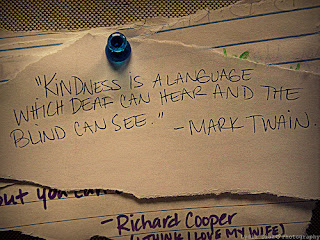 "KINDNESS IS A LANGUAGE
WHICH DEAF CAN HEAR AND THE
BLIND CAN SEE." - MARK TWAIN.
but you
- Richard Cooper
(I THINK I LOVE MY WIFE)
Photography